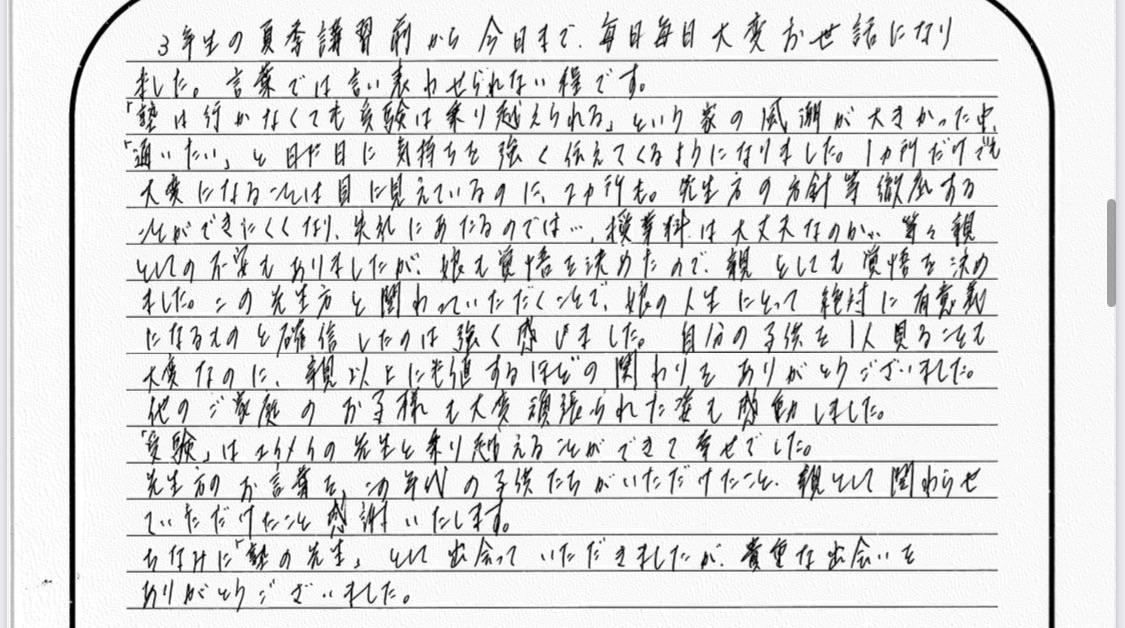 3年生の夏季講習前から今日まで、毎日毎日大変お世話になり
ました。言葉では言い表わせられない程です。
「塾は行かなくても受験は乗り越えられる」という家の風潮が大きかった中、
「通いたい」と日に日に気持ちを強く伝えてくるようになりました。1ヵ所だけでも
大変になることは目に見えているのに、2ヵ所も。先生方の方針等徹底する
ことができにくくなり、失礼にあたるのでは…、授業料は大丈夫なのか… 等々親
としての不安もありましたが、娘も覚悟を決めたので、親としても覚悟を決め
ました。この先生方と関わっていただくことで、娘の人生にとって絶対に有意義
になるものと確信したのは強く感じました。自分の子供を1人見ることも
大変なのに、親以上に匹敵するほどの関わりをありがとうございました。
他のご家庭のお子様も大変頑張られた姿も感動しました。
「受験」はイケメンの先生と乗り越えることができて幸せでした。
先生方のお言葉を、この年代の子供たちがいただけたこと、親として関わらせ
ていただけたこと感謝いたします。
ちなみに「塾の先生」として出会っていただきましたが、貴重な出会いを
ありがとうございました。